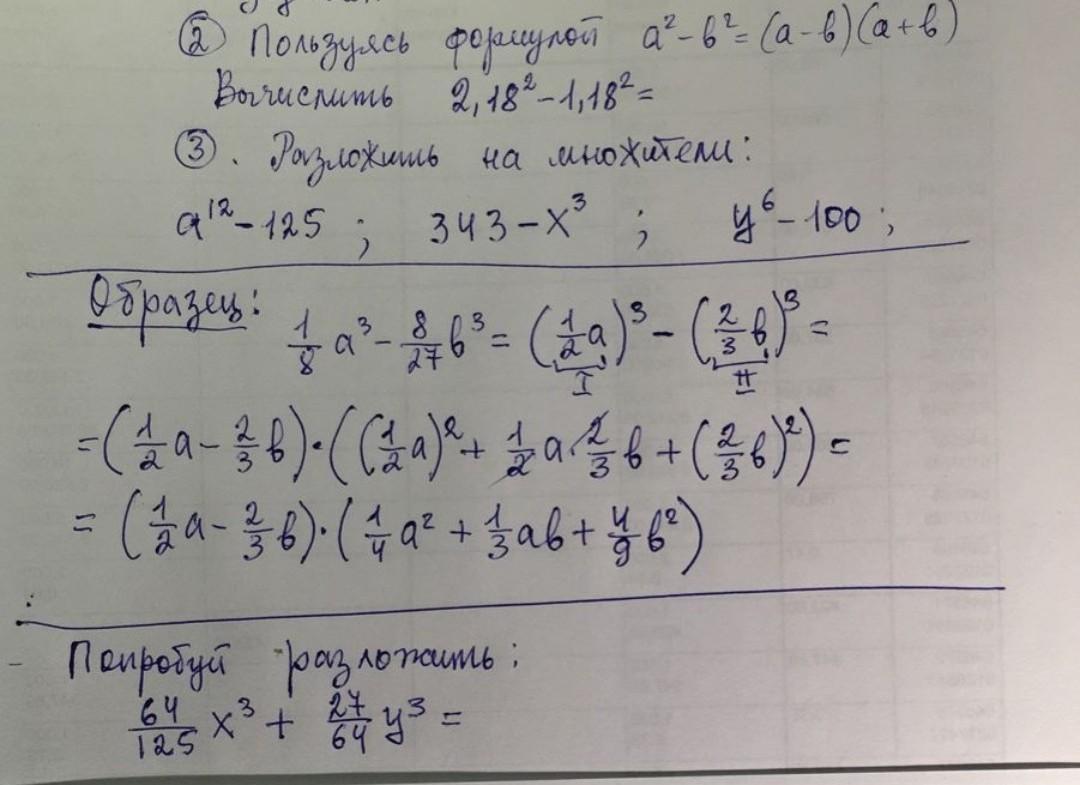 ② Пользуясь формулой a² - b² = (a - b)(a + b)
Вычислить 2,18² - 1,18² =
③. Разложить на множители:
a¹² - 125 ; 343 - x³ ; y⁶ - 100 ;
Образец:
1/8 a³ - 8/27 b³ = (1/2 a)³ - (2/3 b)³ =
I II
= (1/2 a - 2/3 b) · ((1/2 a)² + 1/2 a · 2/3 b + (2/3 b)²) =
= (1/2 a - 2/3 b) · (1/4 a² + 1/3 ab + 4/9 b²)
- Попробуй разложить:
64/125 x³ + 27/64 y³ =